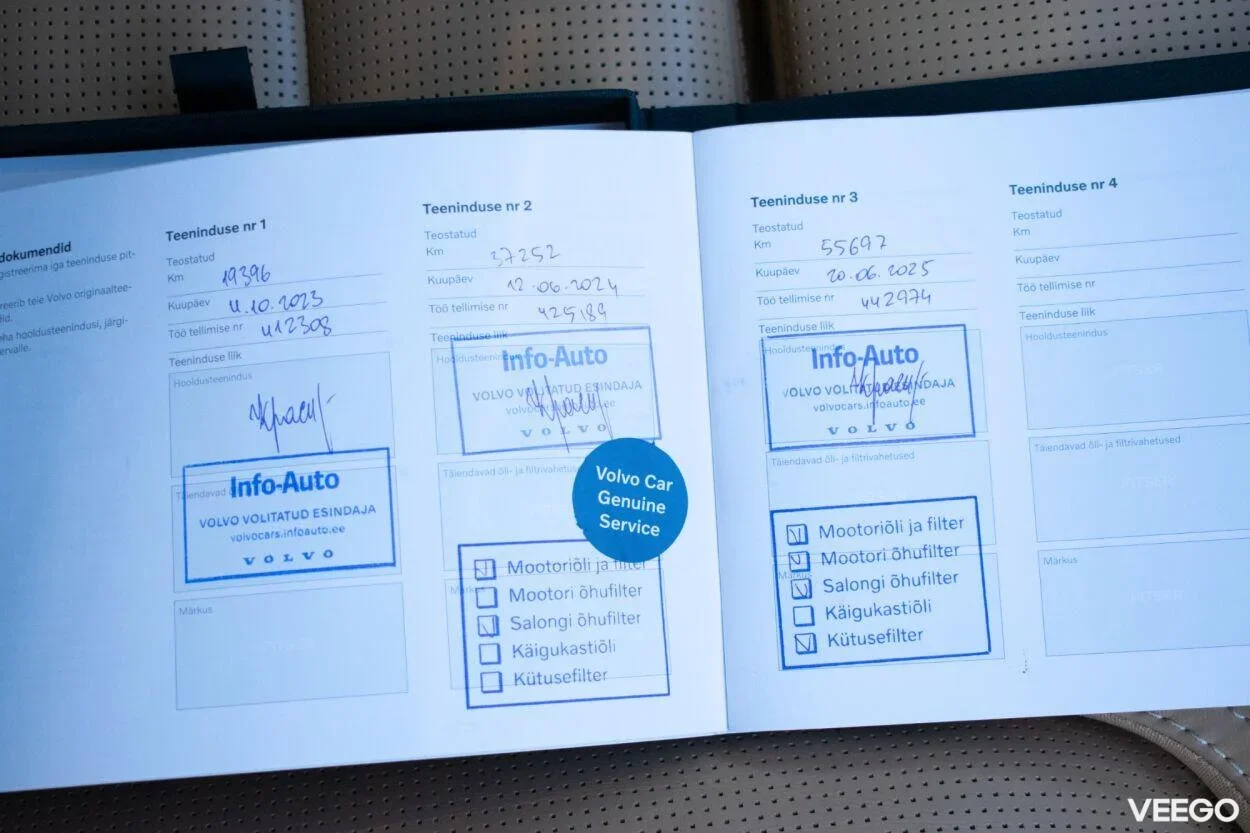 dokumendid
gistreerima iga teeninduse pit-
reerib teie Volvo originaaltee-
did.
eha hooldusteenindusi, järgi-
ervalle.
Teeninduse nr 1
Teostatud
Km 19396
Kuupäev 11.10.2023
Töö tellimise nr 412308
Teeninduse liik
Hooldusteenindus
Info-Auto
VOLVO VOLITATUD ESINDAJA
volvocars.infoauto.ee
VOLVO
Märkus
Teeninduse nr 2
Teostatud
Km 37252
Kuupäev 12.06.2024
Töö tellimise nr 425189
Teeninduse liik
Hooldusteenindus
Info-Auto
VOLVO VOLITATUD ESINDAJA
VOLVO
Täiendavad õli- ja filtrivahetused
Volvo Car
Genuine
Service
Mootoriõli ja filter
Mootori õhufilter
Salongi õhufilter
Käigukastiõli
Kütusefilter
Teeninduse nr 3
Teostatud
Km 55697
Kuupäev 20.06.2025
Töö tellimise nr 442974
Teeninduse liik
Hooldusteenindus
Info-Auto
VOLVO VOLITATUD ESINDAJA
volvocars.infoauto.ee
VOLVO
Täiendavad õli- ja filtrivahetused
Mootoriõli ja filter
Mootori õhufilter
Märkus
Salongi õhufilter
Käigukastiõli
Kütusefilter
Teeninduse nr 4
Teostatud
Km
Kuupäev
Töö tellimise nr
Teeninduse liik
Hooldusteenindus
Täiendavad õli- ja filtrivahetused
Märkus
VEEGO